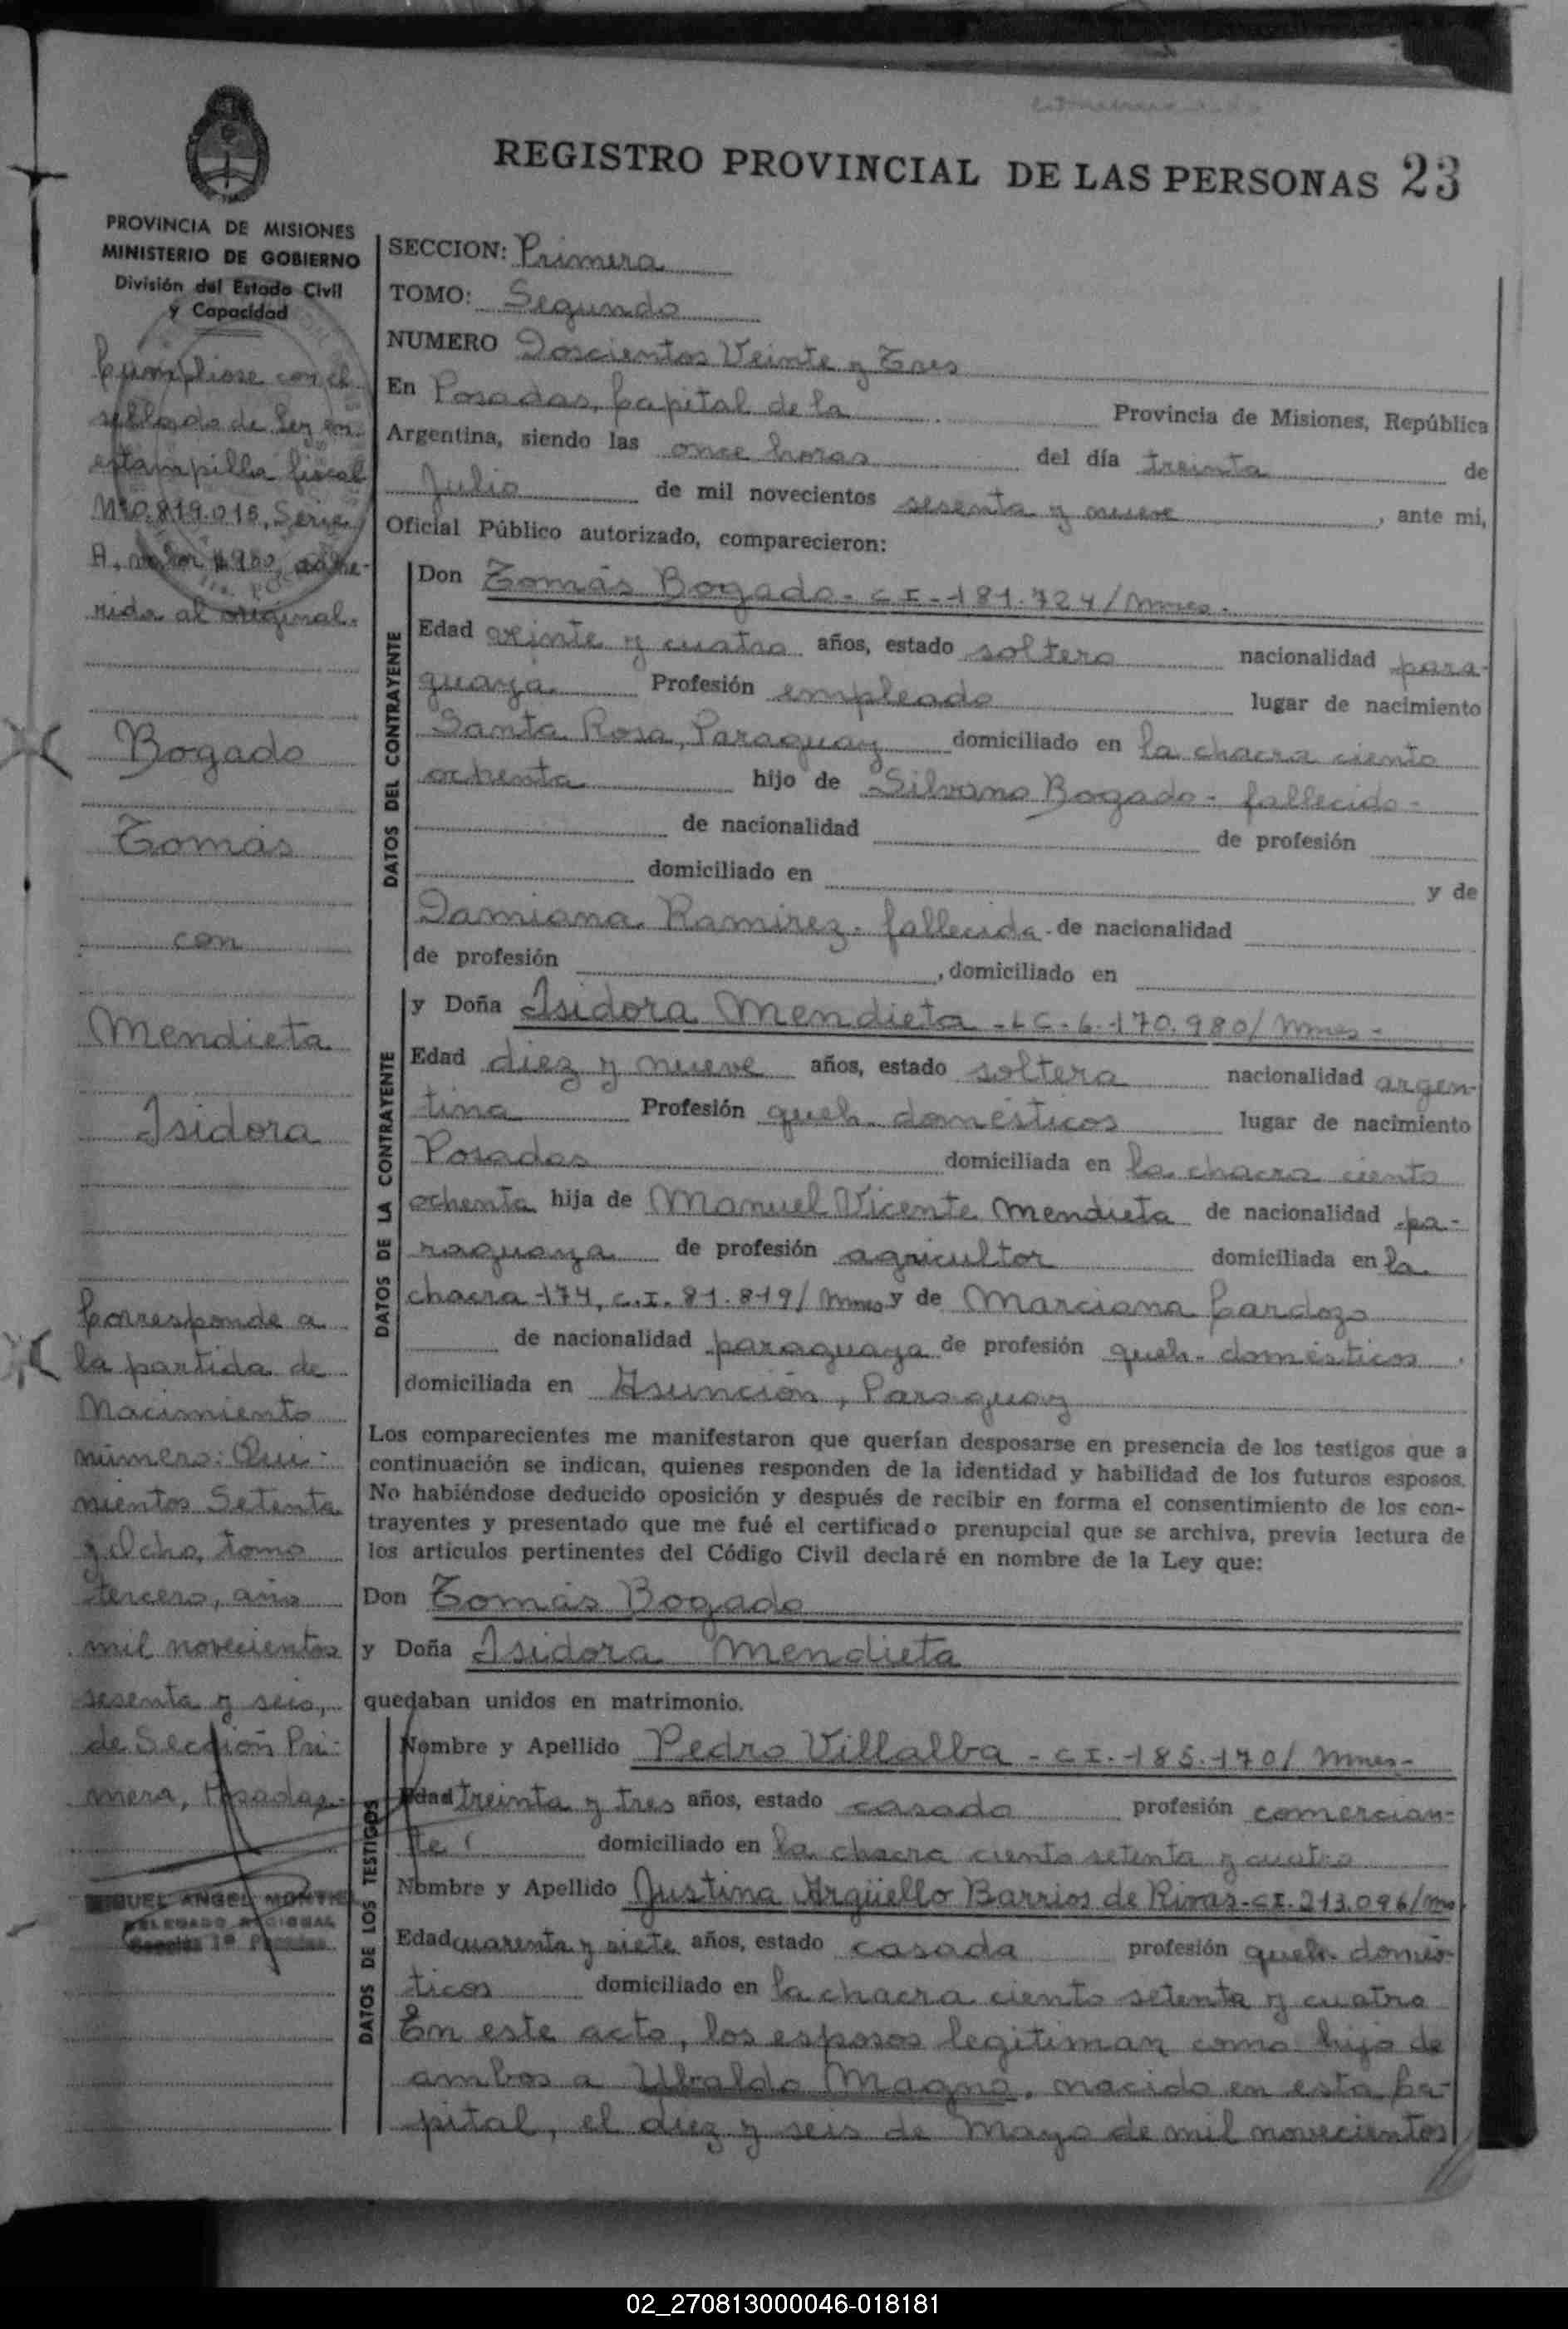 REGISTRO PROVINCIAL DE LAS PERSONAS 23
PROVINCIA DE MISIONES
MINISTERIO DE GOBIERNO
División del Estado Civil
y Capacidad
Cumpliose con el
sellado de Ley en
estampilla fiscal
Nº0.819.015, Serie
A, valor $ 950, adhe-
rida al original.
Bogado
Tomás
con
Mendieta
Isidora
Corresponde a
la partida de
Nacimiento
número: Qui-
nientos Setenta
y Ocho, tomo
tercero, año
mil novecientos
sesenta y seis,
de Sección Pri-
mera, Posadas.-
MIGUEL ANGEL MONTIEL
DELEGADO REGIONAL
Sección 1ª Posadas
SECCION: Primera
TOMO: Segundo
NUMERO Doscientos Veinte y Tres
En Posadas, Capital de la Provincia de Misiones, República
Argentina, siendo las once horas del día treinta de
Julio de mil novecientos sesenta y nueve, ante mi,
Oficial Público autorizado, comparecieron:
DATOS DEL CONTRAYENTE
Don Tomás Bogado - C I - 181.724/Mnes.
Edad veinte y cuatro años, estado soltero nacionalidad para-
guaya Profesión empleado lugar de nacimiento
Santa Rosa, Paraguay domiciliado en la chacra ciento
ochenta hijo de Silvano Bogado - fallecido -
de nacionalidad de profesión
domiciliado en y de
Damiana Ramirez - fallecida - de nacionalidad
de profesión , domiciliado en
DATOS DE LA CONTRAYENTE
y Doña Isidora Mendieta - L C - 6.170.980/Mnes -
Edad diez y nueve años, estado soltera nacionalidad argen-
tina Profesión queh. domésticos lugar de nacimiento
Posadas domiciliada en la chacra ciento
ochenta hija de Manuel Vicente Mendieta de nacionalidad pa-
raguaya de profesión agricultor domiciliada en la
chacra 174, C.I. 81.819/Mnes y de Marciana Cardozo
de nacionalidad paraguaya de profesión queh. domésticos.
domiciliada en Asunción, Paraguay
Los comparecientes me manifestaron que querían desposarse en presencia de los testigos que a
continuación se indican, quienes responden de la identidad y habilidad de los futuros esposos.
No habiéndose deducido oposición y después de recibir en forma el consentimiento de los con-
trayentes y presentado que me fué el certificado prenupcial que se archiva, previa lectura de
los articulos pertinentes del Código Civil declaré en nombre de la Ley que:
Don Tomás Bogado
y Doña Isidora Mendieta
quedaban unidos en matrimonio.
DATOS DE LOS TESTIGOS
Nombre y Apellido Pedro Villalba - C I. - 185.170/ Mnes -
Edad treinta y tres años, estado casado profesión comercian-
te domiciliado en la chacra ciento setenta y cuatro
Nombre y Apellido Justina Argüello Barrios de Rivas - C I. 213.096/Mns
Edad cuarenta y siete años, estado casada profesión queh. domés-
ticos domiciliado en la chacra ciento setenta y cuatro
En este acto, los esposos legitiman como hijo de
ambos a Ubaldo Magno, nacido en esta Ca-
pital, el diez y seis de Mayo de mil novecientos
02_270813000046-018181